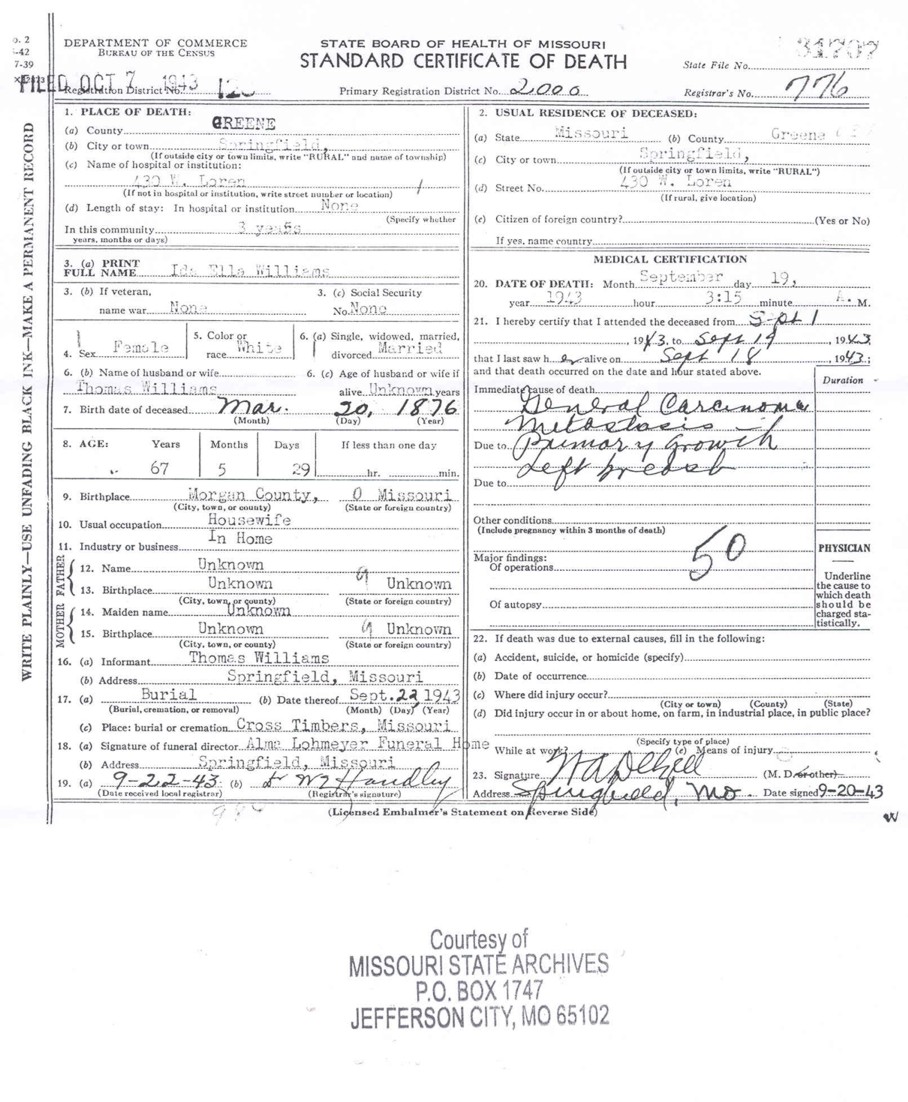 DEPARTMENT OF COMMERCE
BUREAU OF THE CENSUS
STATE BOARD OF HEALTH OF MISSOURI
STANDARD CERTIFICATE OF DEATH
State File No. 31707
FILED OCT 7 1943
Registration District No.
Primary Registration District No. 2000
Registrar's No. 776
WRITE PLAINLY—USE UNFADING BLACK INK—MAKE A PERMANENT RECORD
1. PLACE OF DEATH:
(a) County GREENE
(b) City or town Springfield,
(If outside city or town limits, write "RURAL" and name of township)
(c) Name of hospital or institution:
430 W. Loren
(If not in hospital or institution, write street number or location)
(d) Length of stay: In hospital or institution None
(Specify whether
In this community 3 years
years, months or days)
3. (a) PRINT
FULL NAME Ida Ella Williams
3. (b) If veteran,
name war None
3. (c) Social Security
No. None
4. Sex Female
5. Color or
race White
6. (a) Single, widowed, married,
divorced Married
6. (b) Name of husband or wife
Thomas Williams
6. (c) Age of husband or wife if
alive Unknown years
7. Birth date of deceased Mar. 20, 1876
(Month) (Day) (Year)
8. AGE: Years Months Days If less than one day
67 5 29 hr. min.
9. Birthplace Morgan County, 0 Missouri
(City, town, or county) (State or foreign country)
10. Usual occupation Housewife
11. Industry or business In Home
FATHER
12. Name Unknown
13. Birthplace Unknown 9 Unknown
(City, town, or county) (State or foreign country)
MOTHER
14. Maiden name Unknown
15. Birthplace Unknown 9 Unknown
(City, town, or county) (State or foreign country)
16. (a) Informant Thomas Williams
(b) Address Springfield, Missouri
17. (a) Burial (b) Date thereof Sept. 22 1943
(Burial, cremation, or removal) (Month) (Day) (Year)
(c) Place: burial or cremation Cross Timbers, Missouri
18. (a) Signature of funeral director Alma Lohmeyer Funeral Home
(b) Address Springfield, Missouri
19. (a) 9-22-43 (b) Dr W Handley
(Date received local registrar) (Registrar's signature)
2. USUAL RESIDENCE OF DECEASED:
(a) State Missouri (b) County Greene
(c) City or town Springfield,
(If outside city or town limits, write "RURAL")
(d) Street No. 430 W. Loren
(If rural, give location)
(e) Citizen of foreign country? (Yes or No)
If yes, name country
MEDICAL CERTIFICATION
20. DATE OF DEATH: Month September day 19,
year 1943 hour 3:15 minute A. M.
21. I hereby certify that I attended the deceased from Sept 1
, 1943, to Sept 19, 1943
that I last saw her alive on Sept 18 1943;
and that death occurred on the date and hour stated above.
Duration
Immediate cause of death General Carcinoma
Metastasis
Due to Primary Growth
Left breast
Due to
Other conditions
(Include pregnancy within 3 months of death)
50
Major findings:
Of operations
Of autopsy
PHYSICIAN
Underline
the cause to
which death
should be
charged sta-
tistically.
22. If death was due to external causes, fill in the following:
(a) Accident, suicide, or homicide (specify)
(b) Date of occurrence
(c) Where did injury occur?
(City or town) (County) (State)
(d) Did injury occur in or about home, on farm, in industrial place, in public place?
(Specify type of place)
While at work? (e) Means of injury
23. Signature (M. D. or other)
Address Springfield, Mo. Date signed 9-20-43
(Licensed Embalmer's Statement on Reverse Side)
Courtesy of
MISSOURI STATE ARCHIVES
P.O. BOX 1747
JEFFERSON CITY, MO 65102